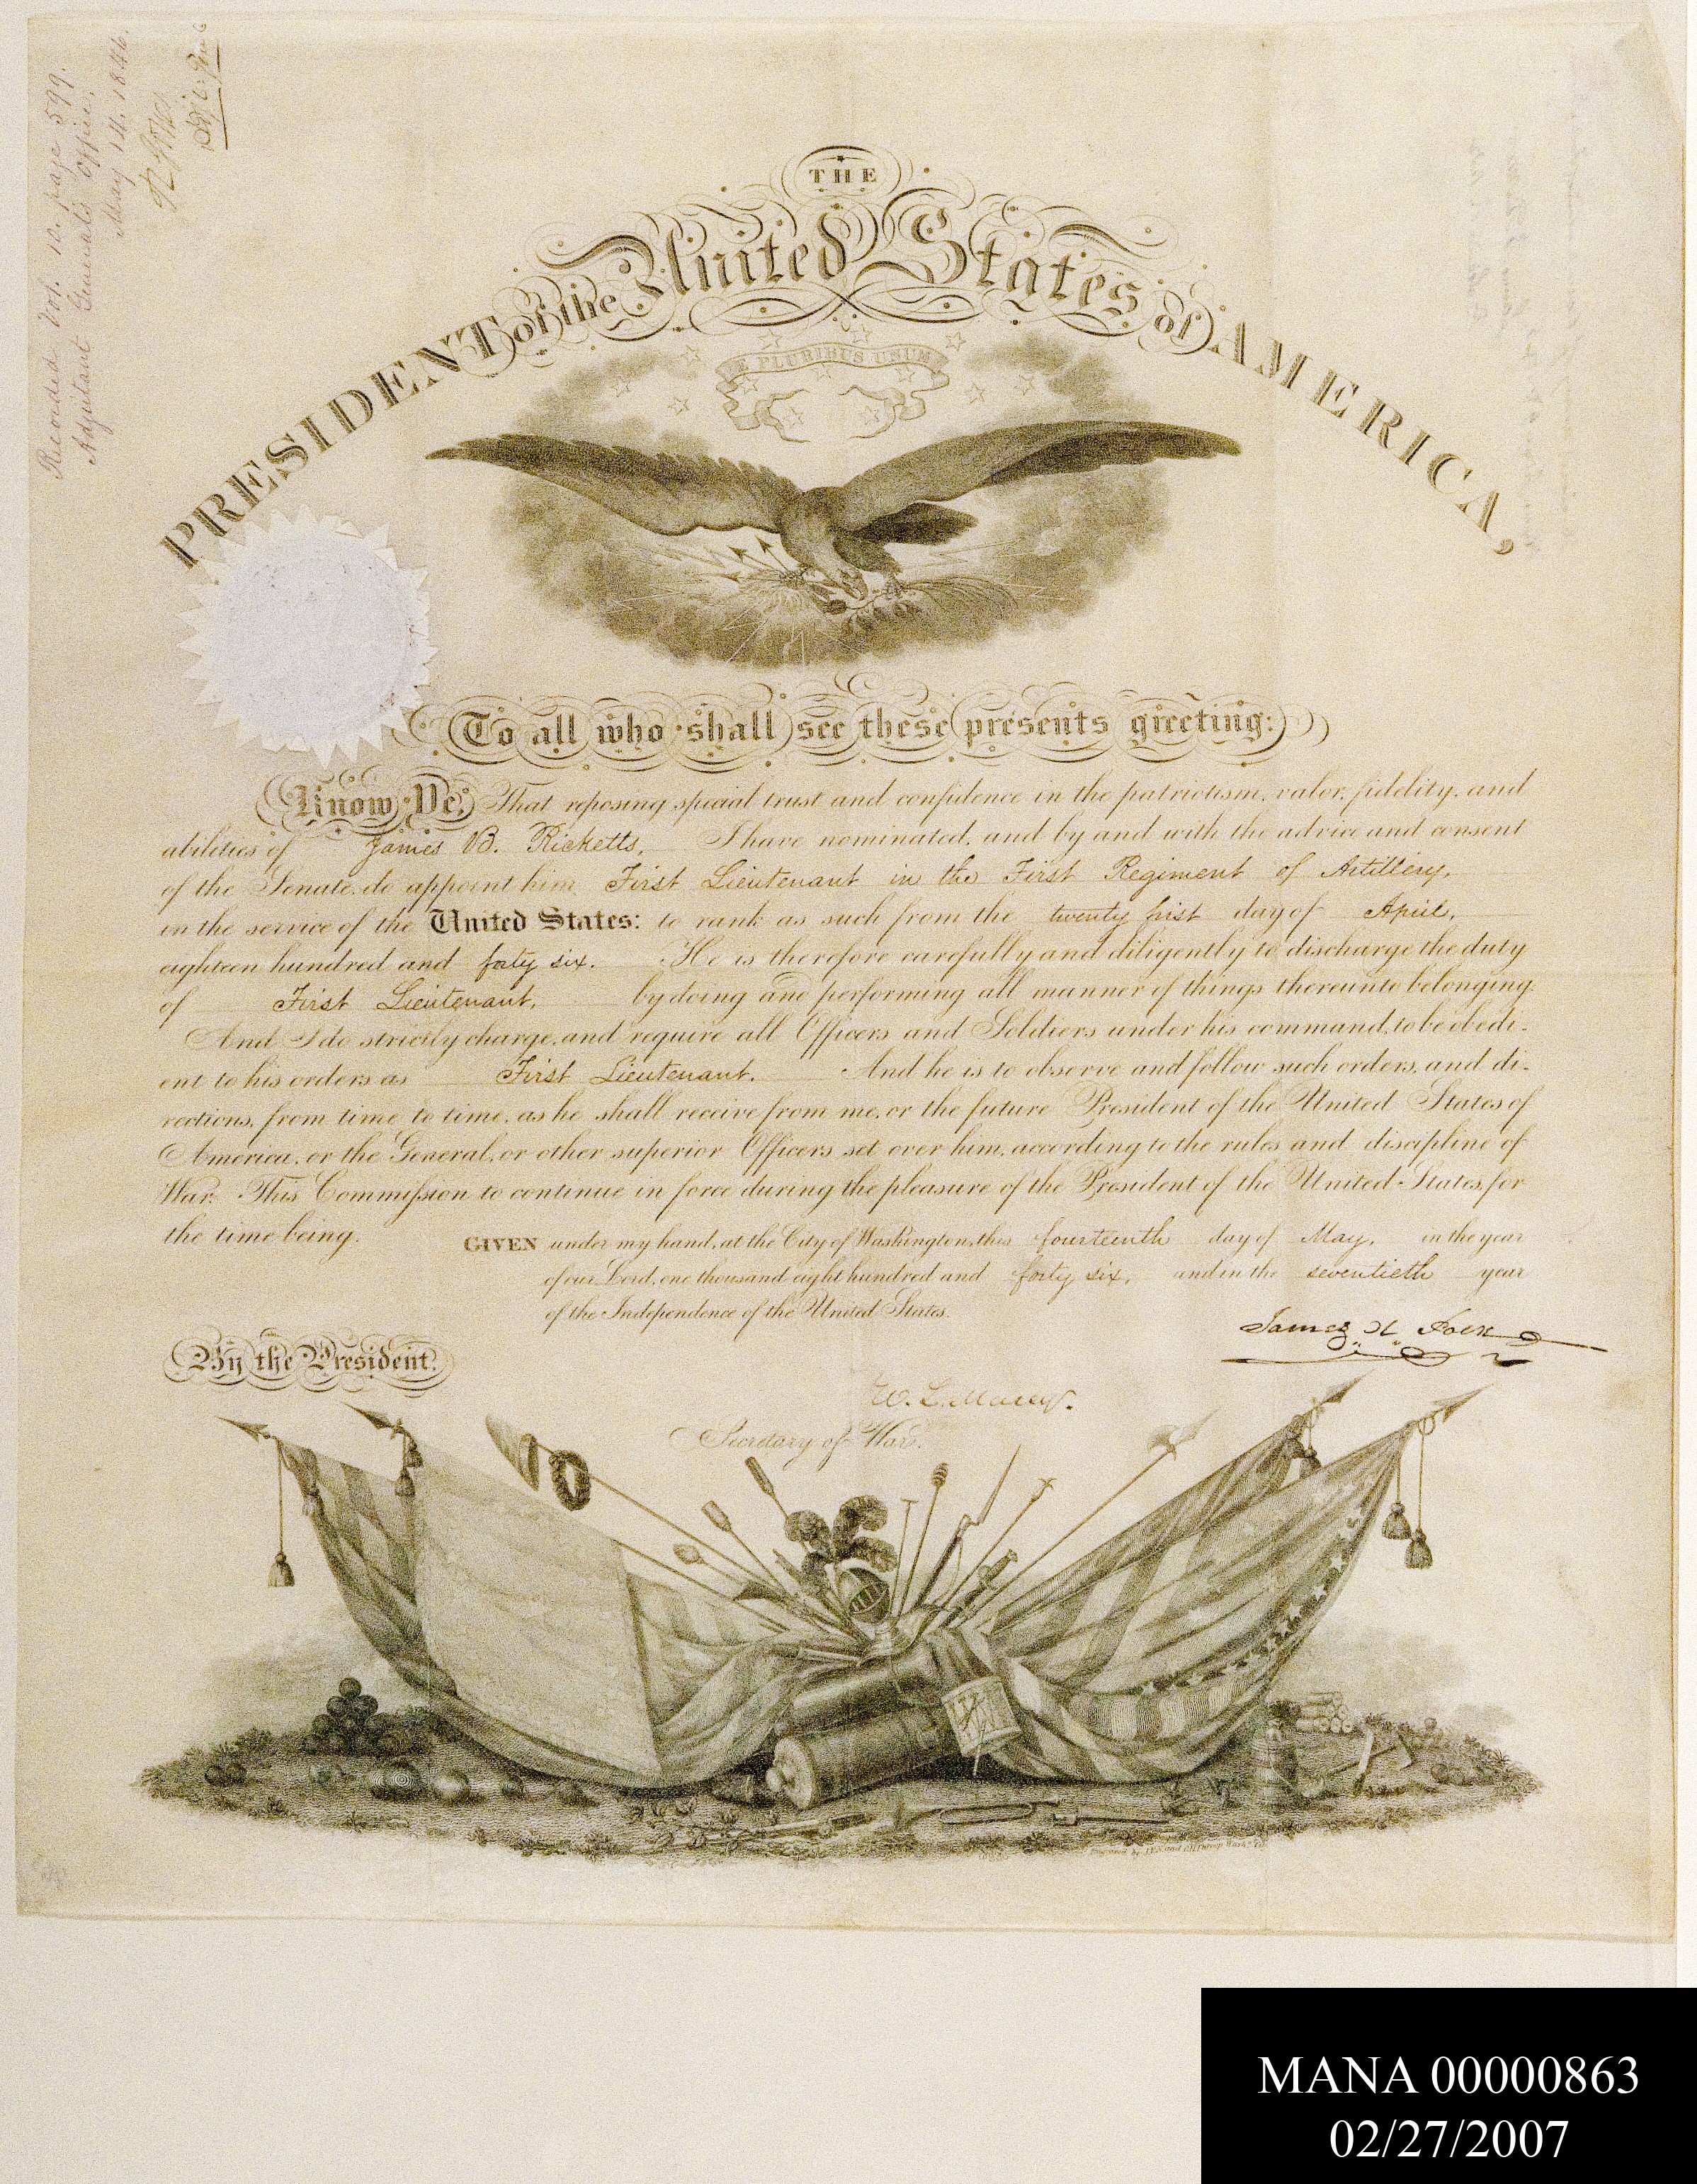 Recorded Vol. 10. page 599.
Adjutant General's Office,
May 14. 1846.
THE
PRESIDENT of the United States of AMERICA,
E PLURIBUS UNUM
To all who shall see these presents greeting:
Know Ye, That reposing special trust and confidence in the patriotism, valor, fidelity, and
abilities of James B. Ricketts, I have nominated, and by and with the advice and consent
of the Senate, do appoint him First Lieutenant in the First Regiment of Artillery,
in the service of the United States: to rank as such from the twenty first day of April,
eighteen hundred and forty six. He is therefore carefully and diligently to discharge the duty
of First Lieutenant, by doing and performing all manner of things thereunto belonging.
And I do strictly charge, and require all Officers and Soldiers under his command, to be obedi-
ent to his orders as First Lieutenant. And he is to observe and follow such orders, and di-
rections, from time to time, as he shall receive from me, or the future President of the United States of
America, or the General, or other superior Officers set over him, according to the rules and discipline of
War. This Commission to continue in force during the pleasure of the President of the United States, for
the time being.
GIVEN under my hand, at the City of Washington, this fourteenth day of May, in the year
of our Lord, one thousand eight hundred and forty six, and in the seventieth year
of the Independence of the United States.
James K Polk
By the President.
W. L. Marcy.
Secretary of War.
Engraved by
MANA 00000863
02/27/2007